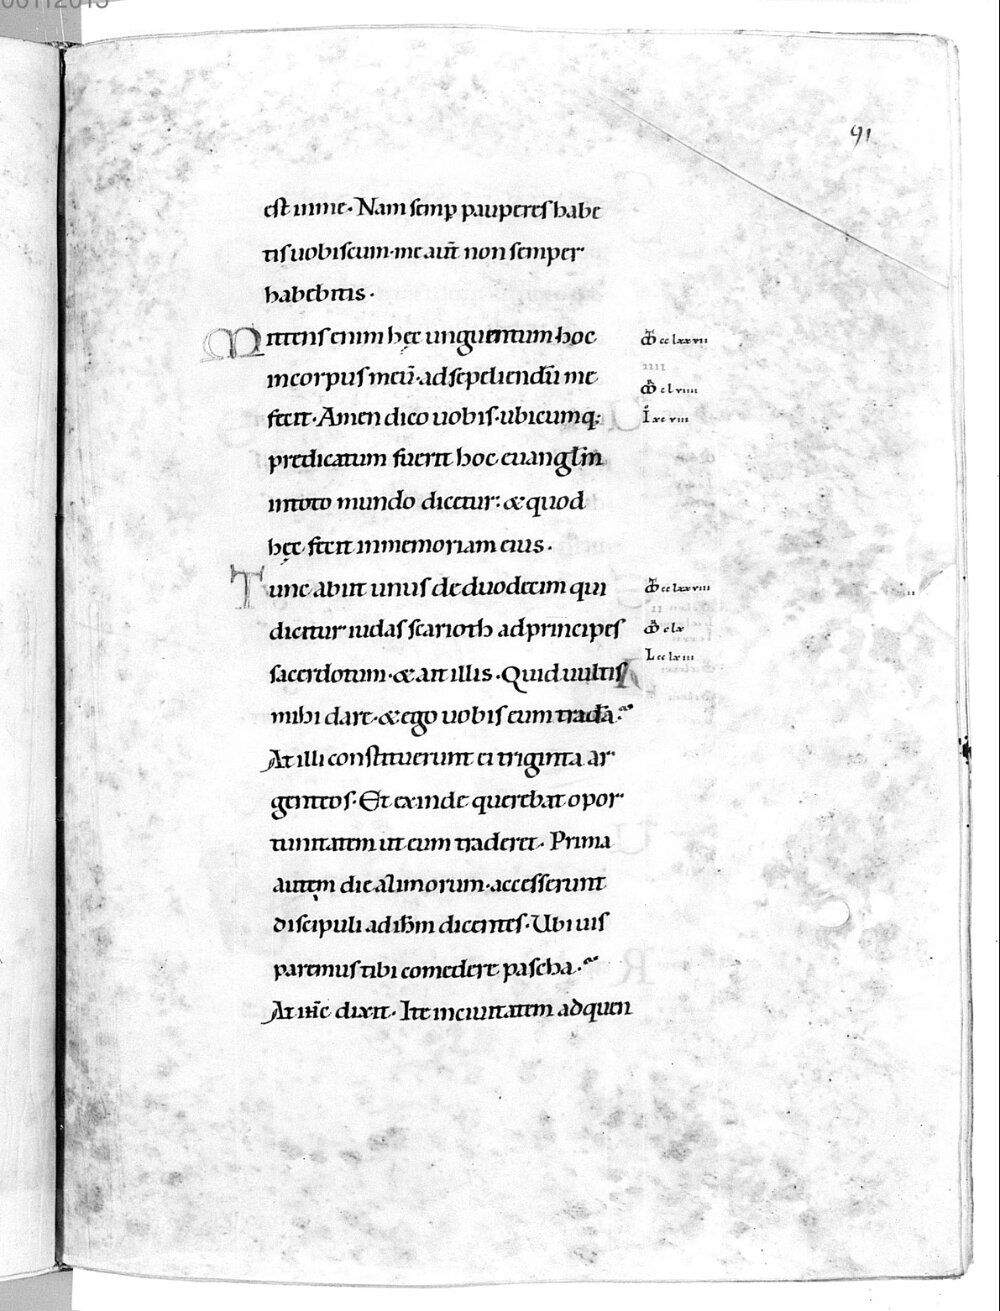 00112013
91
est inme· Nam semp pauperes habe
tis uobiscum· me aut̄ non semper
habebitis·
Mittens enim hęc unguentum hoc
incorpus meū· adsepeliendū me
fecit· Amen dico uobis· ubicumq;
predicatum fuerit hoc euangl̄m
intoto mundo dicetur: & quod
hęc fecit inmemoriam eius·
Tunc abiit unus deduodecim qui
dicitur iudas scarioth adprincipes
sacerdotum· & ait illis· Quid uultis
mihi dare· & ego uobis eum tradā·
At illi constituerunt ei triginta ar
genteos· Et exinde querebat opor
tunitatem ut eum traderet· Prima
autem die azimorum· accesserunt
discipuli adihm̄ dicentes· Ubi uis
paremus tibi comedere pascha·
At ihc̄ dixit· Ite inciuitatem adquen
cc lxxvii
iiii
c l viiii
I xc viii
cc lxx viii
c lx
L cc lx iii